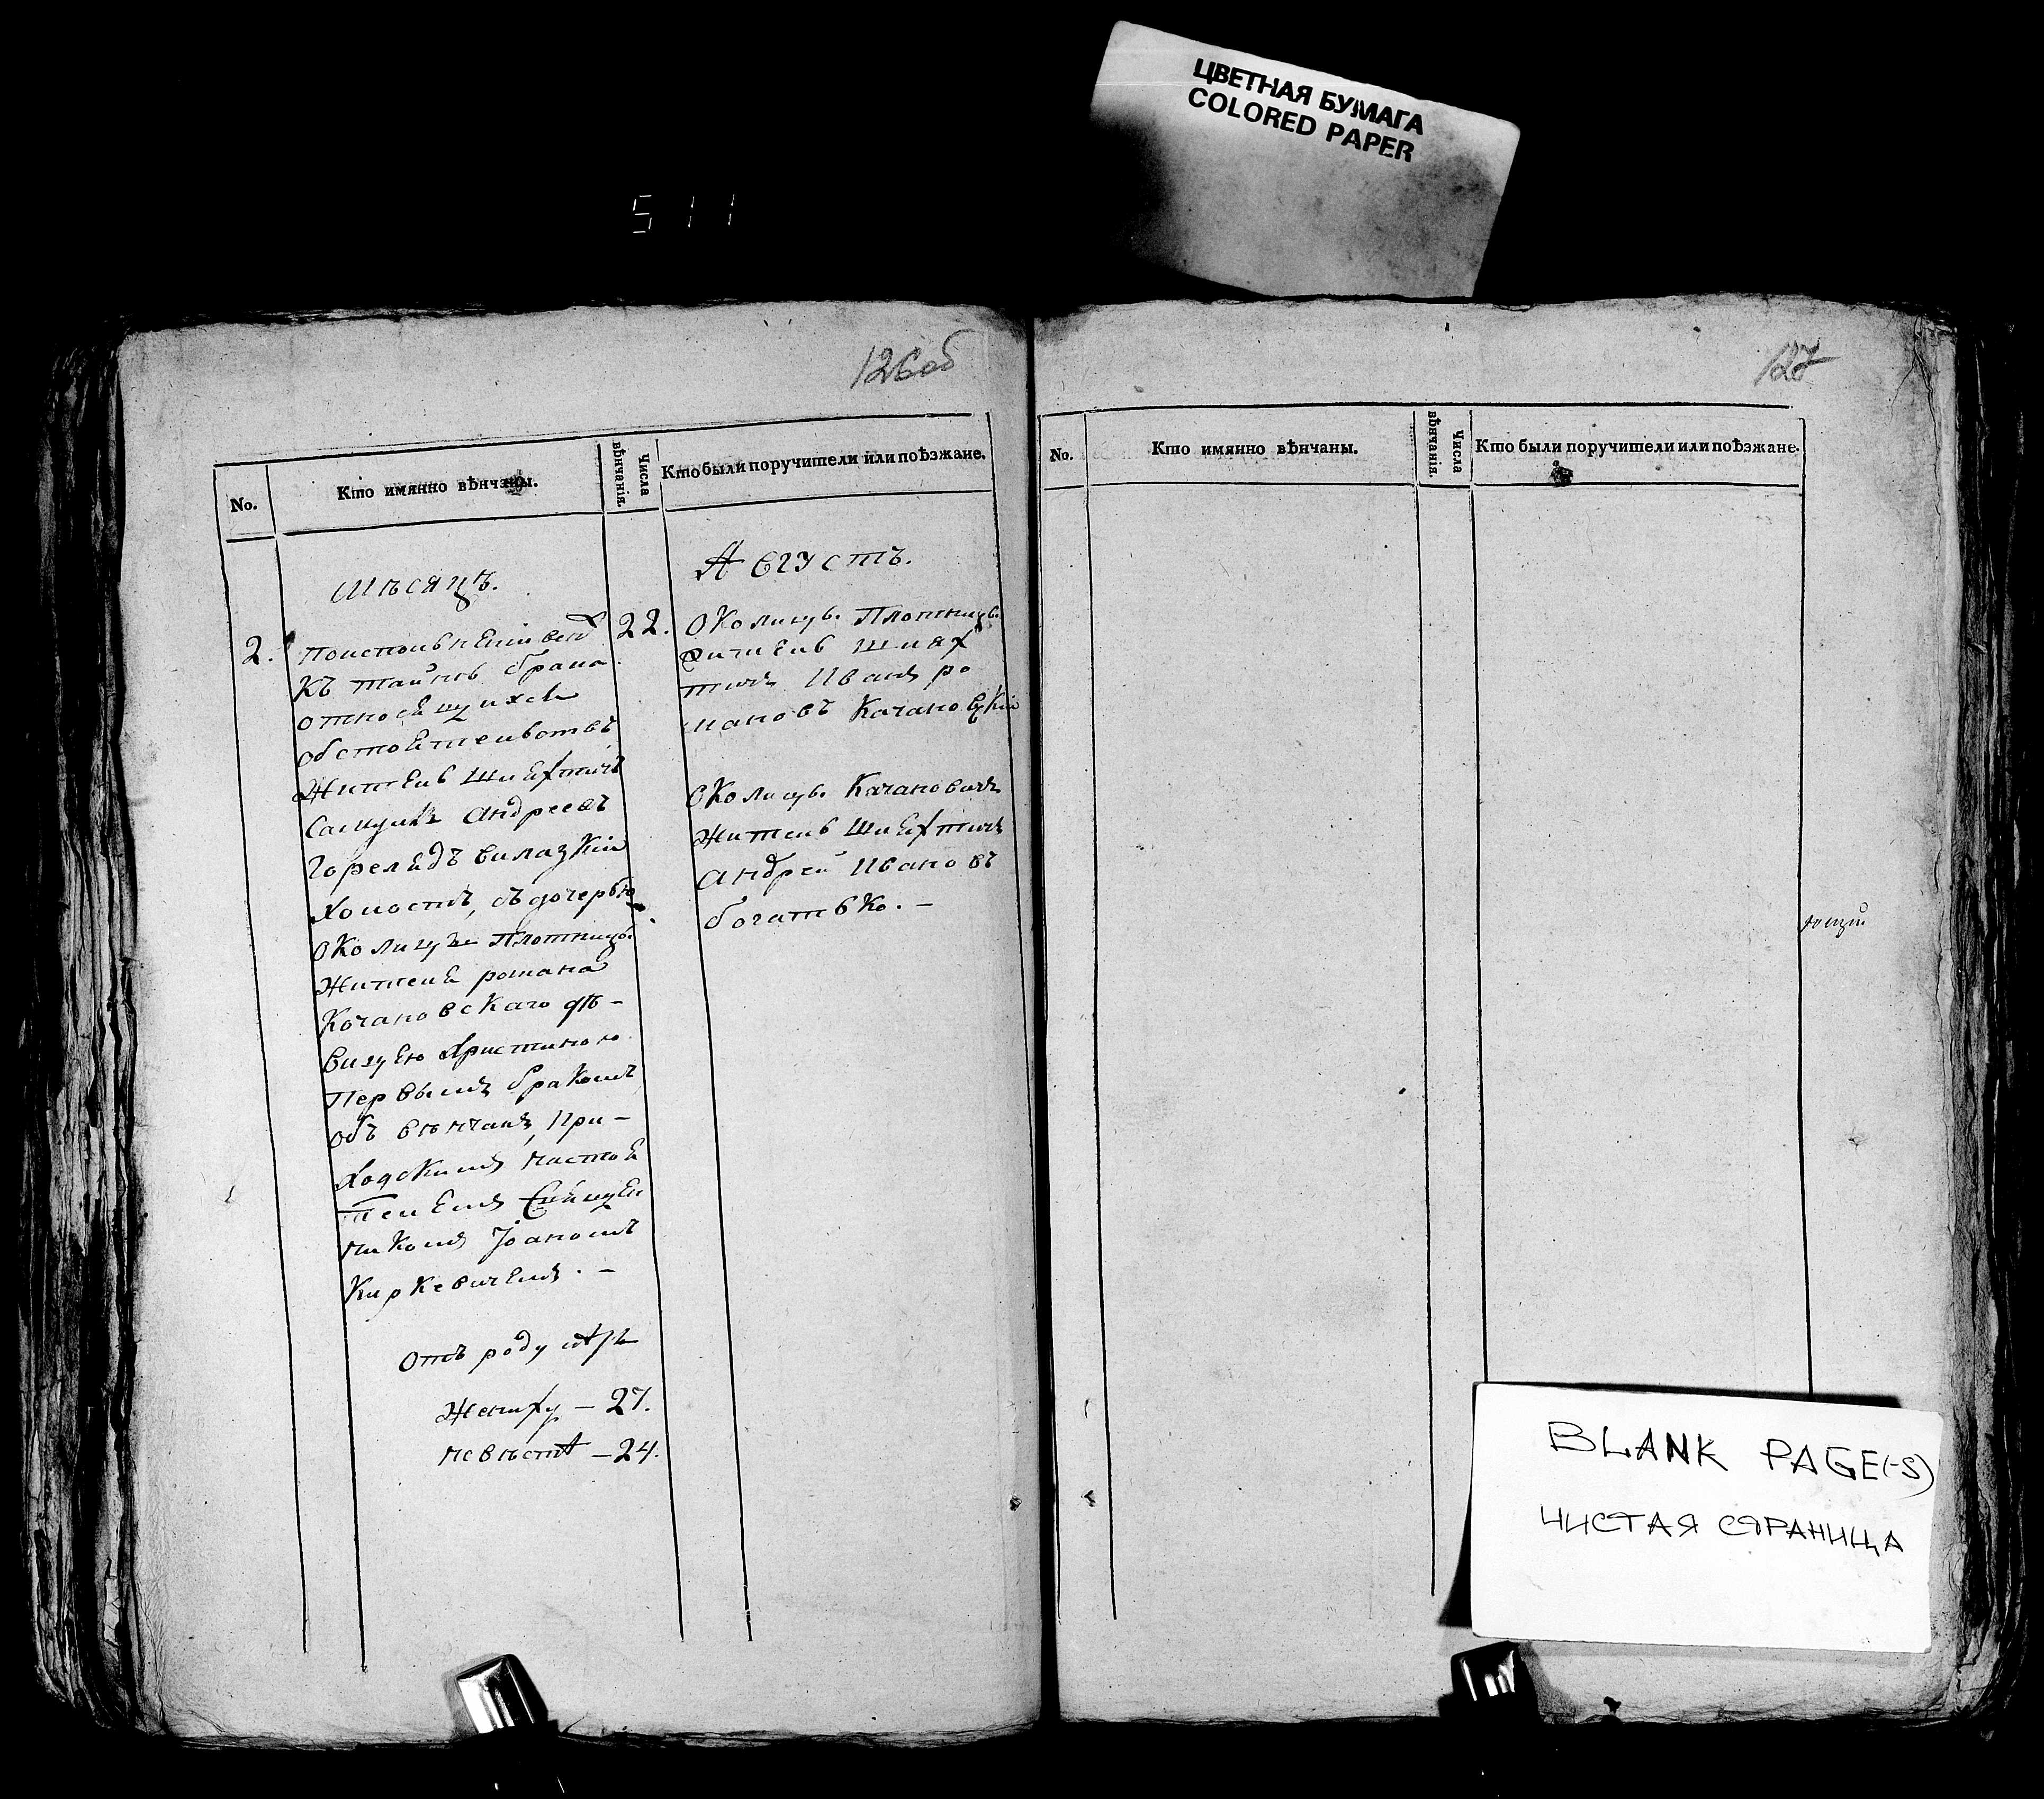 ЦВЕТНАЯ БУМАГА
COLORED PAPER
511
126об
No.
Кто имянно вѣнчаны.
Числа вѣнчанія.
Кто были поручители или поѣзжане.
Мѣсяцъ.
Августъ.
2.
къ тайнѣ брака
относящихся
обстоятельствъ
Житель шляхтичь
Андреевъ
холостъ, съ дочерью
околицы Плотницы
жителя романа
Кочановскаго дѣ-
вицею Христиною
Первымъ бракомъ
объ вѣнчанъ, При-
ходскимъ настоя
телемъ Священ
никомъ Іоаномъ
Киркевичемъ. -
Отъ роду лѣтъ
Жениху - 27.
невѣстѣ - 24.
22.
Околицы Плотницы
житель шлях
тичь Иванъ ро
мановъ Качановскій
Околицы Качановичь
Житель шляхтичь
Андрей Ивановъ
богатько. -
127
No.
Кто имянно вѣнчаны.
Числа вѣнчанія.
Кто были поручители или поѣзжане.
BLANK PAGE(-S)
ЧИСТАЯ СТРАНИЦА